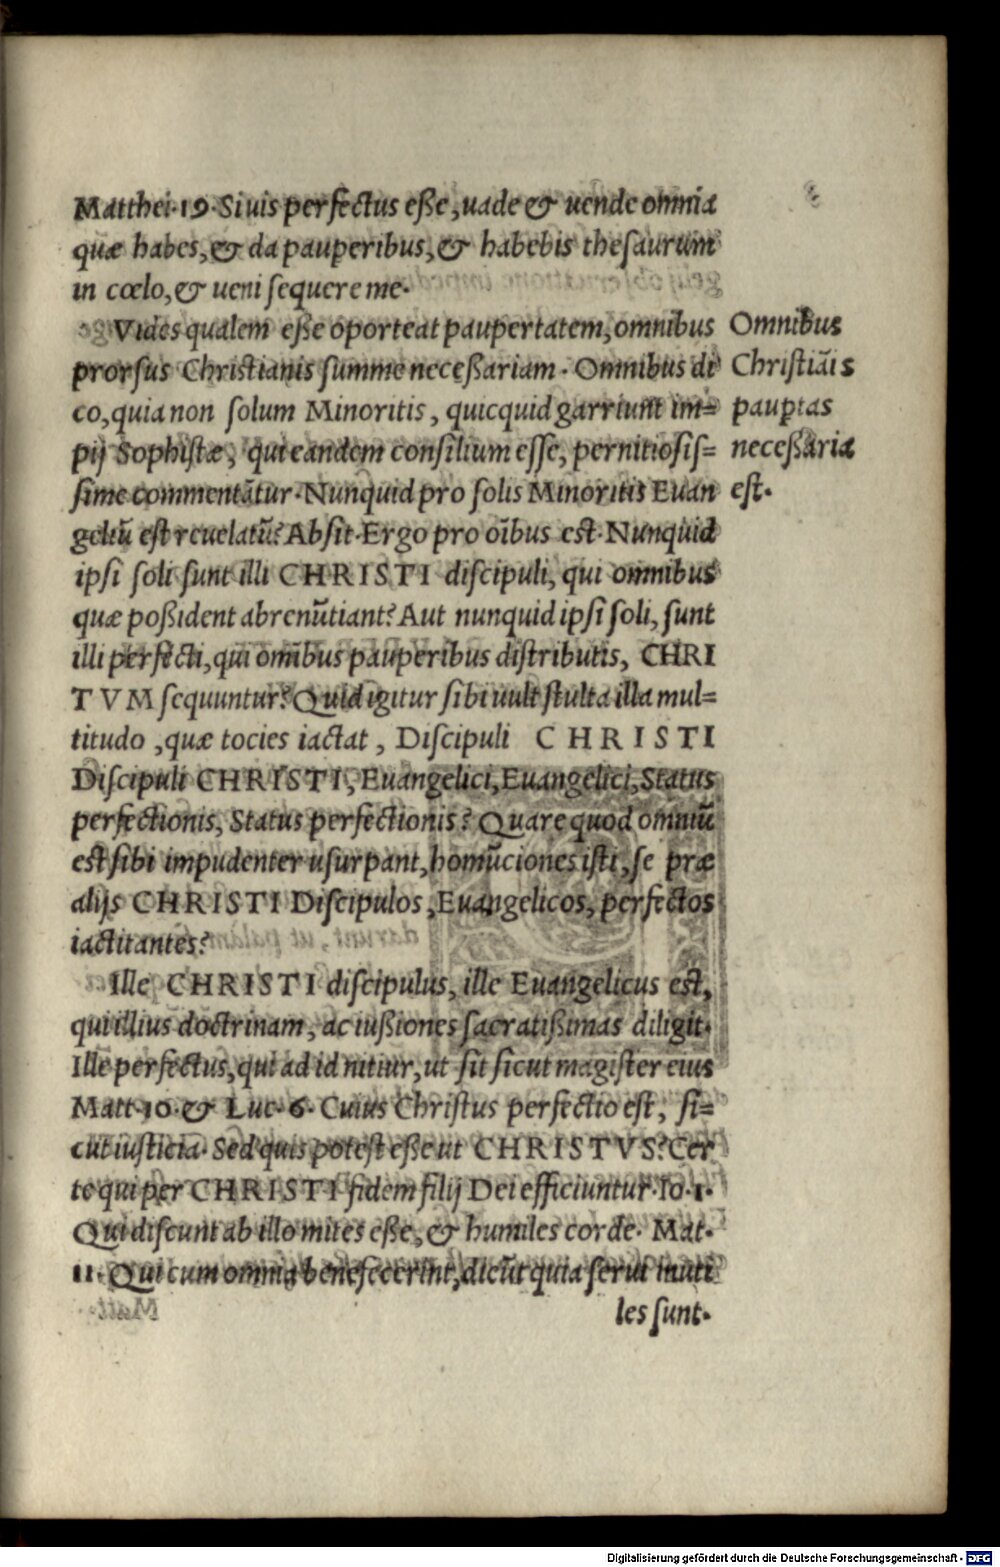 Matthei·19·Si uis perfectus eße, uade & uende omnia
quæ habes, & da pauperibus, & habebis thesaurum
in cœlo, & ueni sequere me·
Vides qualem eße oporteat paupertatem, omnibus
prorsus Christianis summe neceßariam· Omnibus di
co, quia non solum Minoritis, quicquid garriunt im=
pij Sophistæ, qui eandem consilium esse, pernitiosis=
sime commentātur·Nunquid pro solis Minoritis Euan
geliū est reuelatū? Absit·Ergo pro oībus est·Nunquid
ipsi soli sunt illi CHRISTI discipuli, qui omnibus
quæ poßident abrenūtiant? Aut nunquid ipsi soli, sunt
illi perfecti, qui omībus pauperibus distributis, CHRI
TVM sequuntur? Quid igitur sibi uult stulta illa mul=
titudo, quæ tocies iactat, Discipuli CHRISTI
Discipuli CHRISTI, Euangelici, Euangelici, Status
perfectionis, Status perfectionis? Quare quod omniū
est sibi impudenter usurpant, homūciones isti, se præ
alijs CHRISTI Discipulos, Euangelicos, perfectos
iactitantes?
Ille CHRISTI discipulus, ille Euangelicus est,
qui illius doctrinam, ac iußiones sacratißimas diligit·
Ille perfectus, qui ad id nitiur, ut sit sicut magister eius
Matt·10·& Luc·6· Cuius Christus perfectio est, si=
cut iusticia· Sed quis potest eße ut CHRISTVS? Cer
te qui per CHRISTI fidem filij Dei efficiuntur·Io·1·
Qui discunt ab illo mites eße, & humiles corde· Mat·
11·Qui cum omnia benefecerint, dicūt quia serui inuti
les sunt·
Omnibus
Christiāis
pauptas
neceßaria
est·
Digitalisierung gefördert durch die Deutsche Forschungsgemeinschaft - DFG